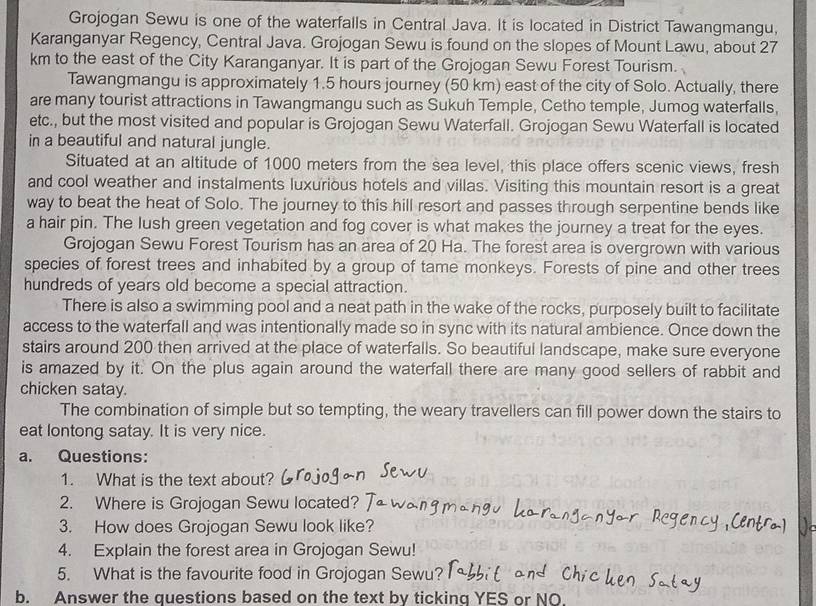 Grojogan Sewu is one of the waterfalls in Central Java. It is located in District Tawangmangu,
Karanganyar Regency, Central Java. Grojogan Sewu is found on the slopes of Mount Lawu, about 27
km to the east of the City Karanganyar. It is part of the Grojogan Sewu Forest Tourism.
Tawangmangu is approximately 1.5 hours journey (50 km) east of the city of Solo. Actually, there
are many tourist attractions in Tawangmangu such as Sukuh Temple, Cetho temple, Jumog waterfalls,
etc., but the most visited and popular is Grojogan Sewu Waterfall. Grojogan Sewu Waterfall is located
in a beautiful and natural jungle.
Situated at an altitude of 1000 meters from the sea level, this place offers scenic views, fresh
and cool weather and instalments luxurious hotels and villas. Visiting this mountain resort is a great
way to beat the heat of Solo. The journey to this hill resort and passes through serpentine bends like
a hair pin. The lush green vegetation and fog cover is what makes the journey a treat for the eyes.
Grojogan Sewu Forest Tourism has an area of 20 Ha. The forest area is overgrown with various
species of forest trees and inhabited by a group of tame monkeys. Forests of pine and other trees
hundreds of years old become a special attraction.
There is also a swimming pool and a neat path in the wake of the rocks, purposely built to facilitate
access to the waterfall and was intentionally made so in sync with its natural ambience. Once down the
stairs around 200 then arrived at the place of waterfalls. So beautiful landscape, make sure everyone
is amazed by it. On the plus again around the waterfall there are many good sellers of rabbit and
chicken satay.
The combination of simple but so tempting, the weary travellers can fill power down the stairs to
eat lontong satay. It is very nice.
a. Questions:
1. What is the text about? Grojogan Sewu
2. Where is Grojogan Sewu located? Tawangmangu karanganyar Regency, Central
3. How does Grojogan Sewu look like?
4. Explain the forest area in Grojogan Sewu!
5. What is the favourite food in Grojogan Sewu? rabbit and Chicken Satay
b. Answer the questions based on the text by ticking YES or NO.